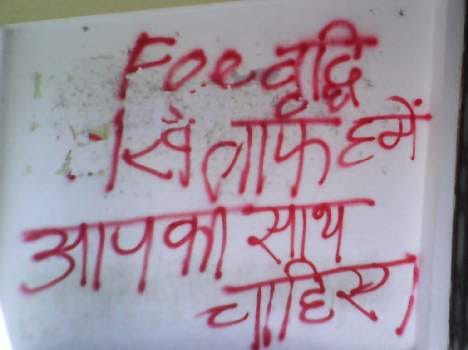 Fee वृद्धि
खिलाफ हमें
आपका साथ
चाहिए।